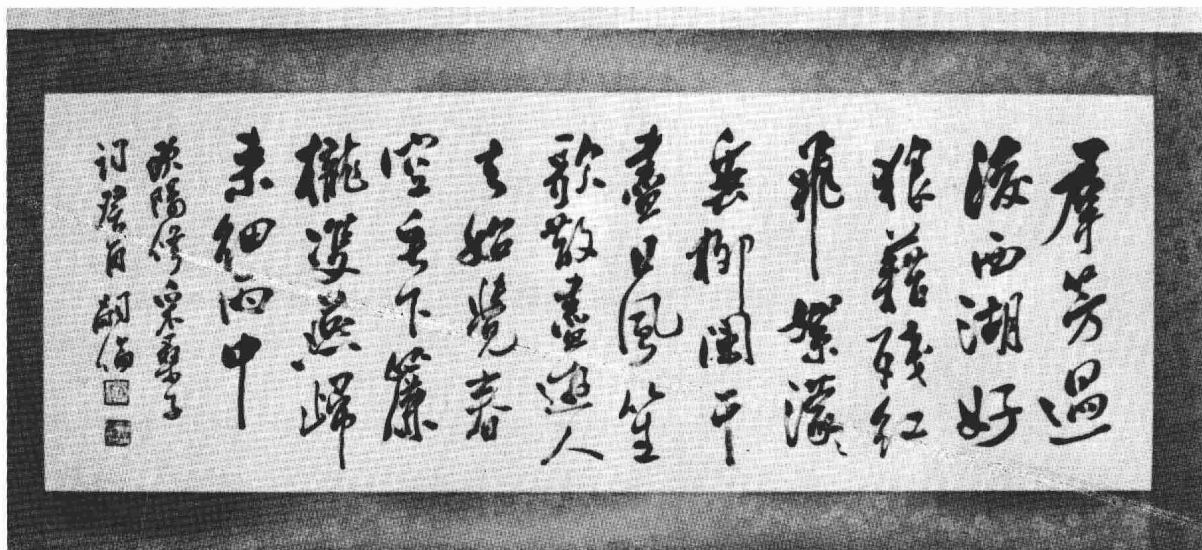 羣芳過
後西湖好
狼藉殘紅
飛絮濛〻
垂柳闌干
盡日風笙
歌散盡遊人
去始覺春
空垂下簾
櫳雙燕歸
來細雨中
歐陽修采桑子
詞